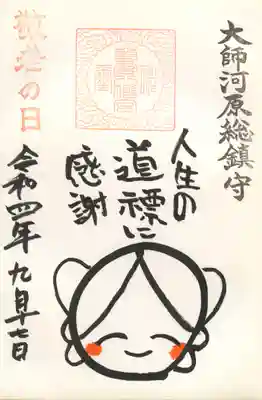 大師河原総鎮守
人生の
道標に
感謝
敬老の日
令和四年 九月十七日